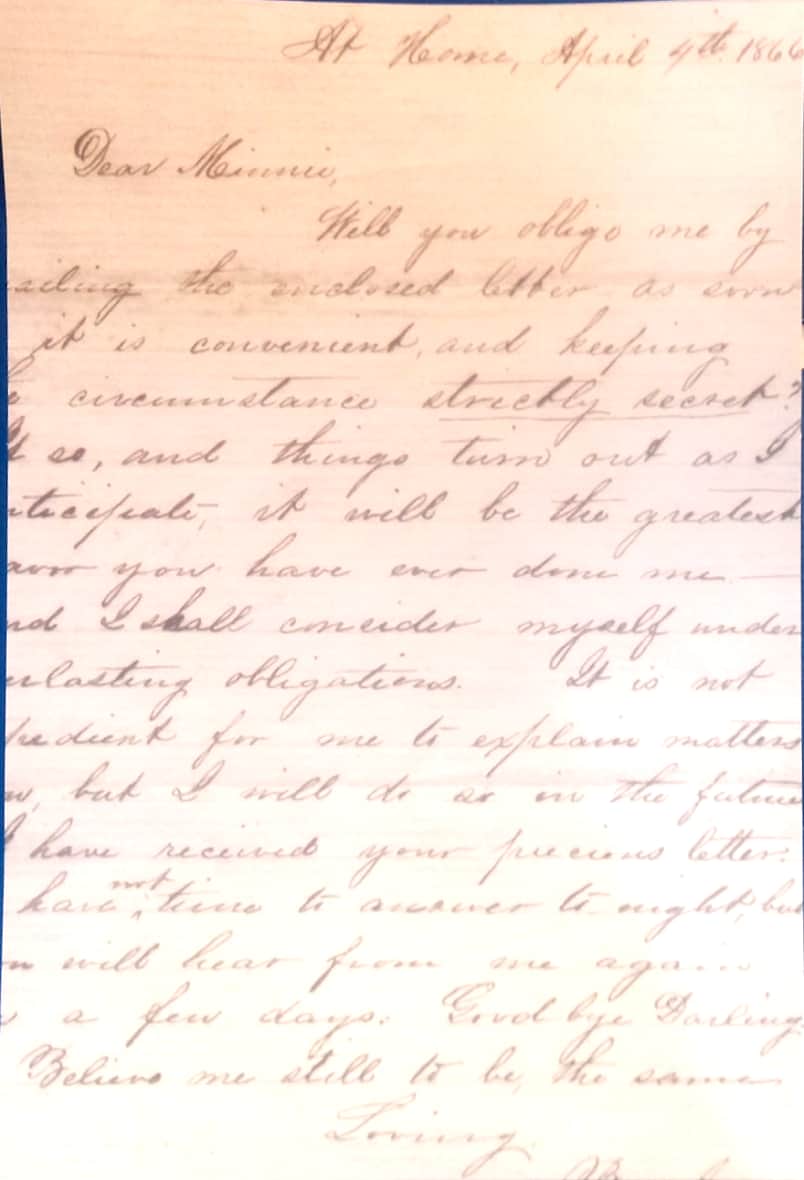 At Home, April 4th. 1866
Dear Minnie,
Will you oblige me by
ailing the enclosed letter as soon
it is convenient, and keeping
e circumstance strictly secret?
If so, and things turn out as I
nticipate, it will be the greatest
avor you have ever done me —
nd I shall consider myself under
erlasting obligations. It is not
pedient for me to explain matters
w, but I will do so in the future
I have received your precious letter:
have not time to answer to-night, but
ou will hear from me again
n a few days: Good bye Darling.
Believe me still to be, the same
Loving